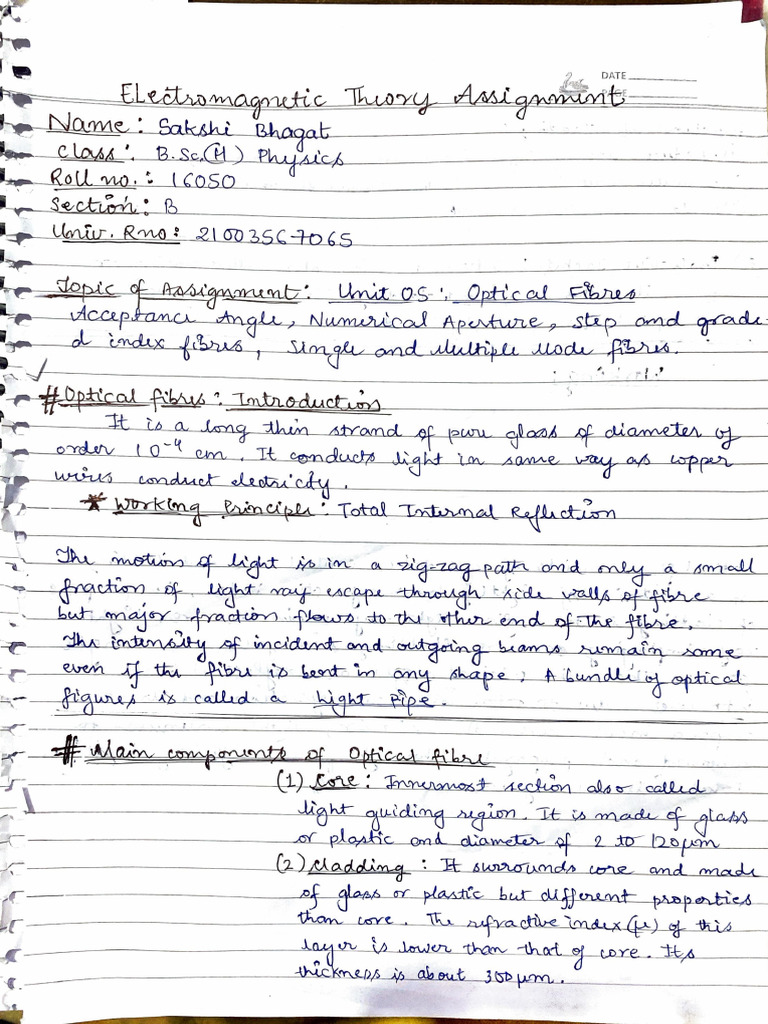 DATE
PAGE
Electromagnetic Theory Assignment
Name: Sakshi Bhagat
Class: B.Sc.(H) Physics
Roll no.: 16050
Section: B
Univ. Rno: 21003567065
Topic of Assignment: Unit 05: Optical Fibres
Acceptance Angle, Numerical Aperture, Step and grade-
d index fibres, Single and Multiple Mode fibres.
# Optical fibres: Introduction
It is a long thin strand of pure glass of diameter of
order 10⁻⁴ cm. It conducts light in same way as copper
wires conduct electricity.
* Working Principle: Total Internal Reflection
The motion of light is in a zig-zag path and only a small
fraction of light ray escape through side walls of fibre
but major fraction flows to the other end of the fibre.
The intensity of incident and outgoing beams remain same
even if the fibre is bent in any shape. A bundle of optical
figures is called a Light Pipe.
# Main components of Optical fibre
(1) Core: Innermost section also called
light guiding region. It is made of glass
or plastic and diameter of 2 to 120µm
(2) Cladding: It surrounds core and made
of glass or plastic but different properties
than core. The refractive index (µ) of this
layer is lower than that of core. Its
thickness is about 300µm.